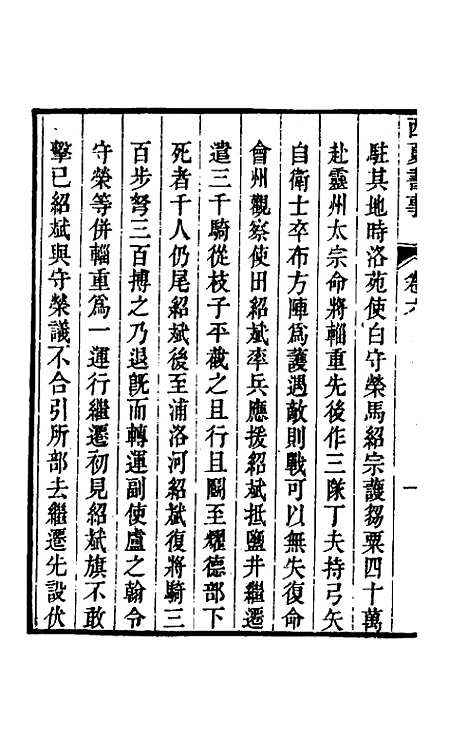 西夏書事
卷六
一
駐其地時洛苑使白守榮馬紹宗護芻粟四十萬
赴靈州太宗命將輜重先後作三隊丁夫持弓矢
自衛士卒布方陣爲護遇敵則戰可以無失復命
會州觀察使田紹斌率兵應援紹斌抵鹽井繼遷
遣三千騎從枝子平截之且行且鬭至耀德部下
死者千人仍尾紹斌後至浦洛河紹斌復將騎三
百步弩三百搏之乃退旣而轉運副使盧之翰令
守榮等併輜重爲一運行繼遷初見紹斌旗不敢
擊已紹斌與守榮議不合引所部去繼遷先設伏